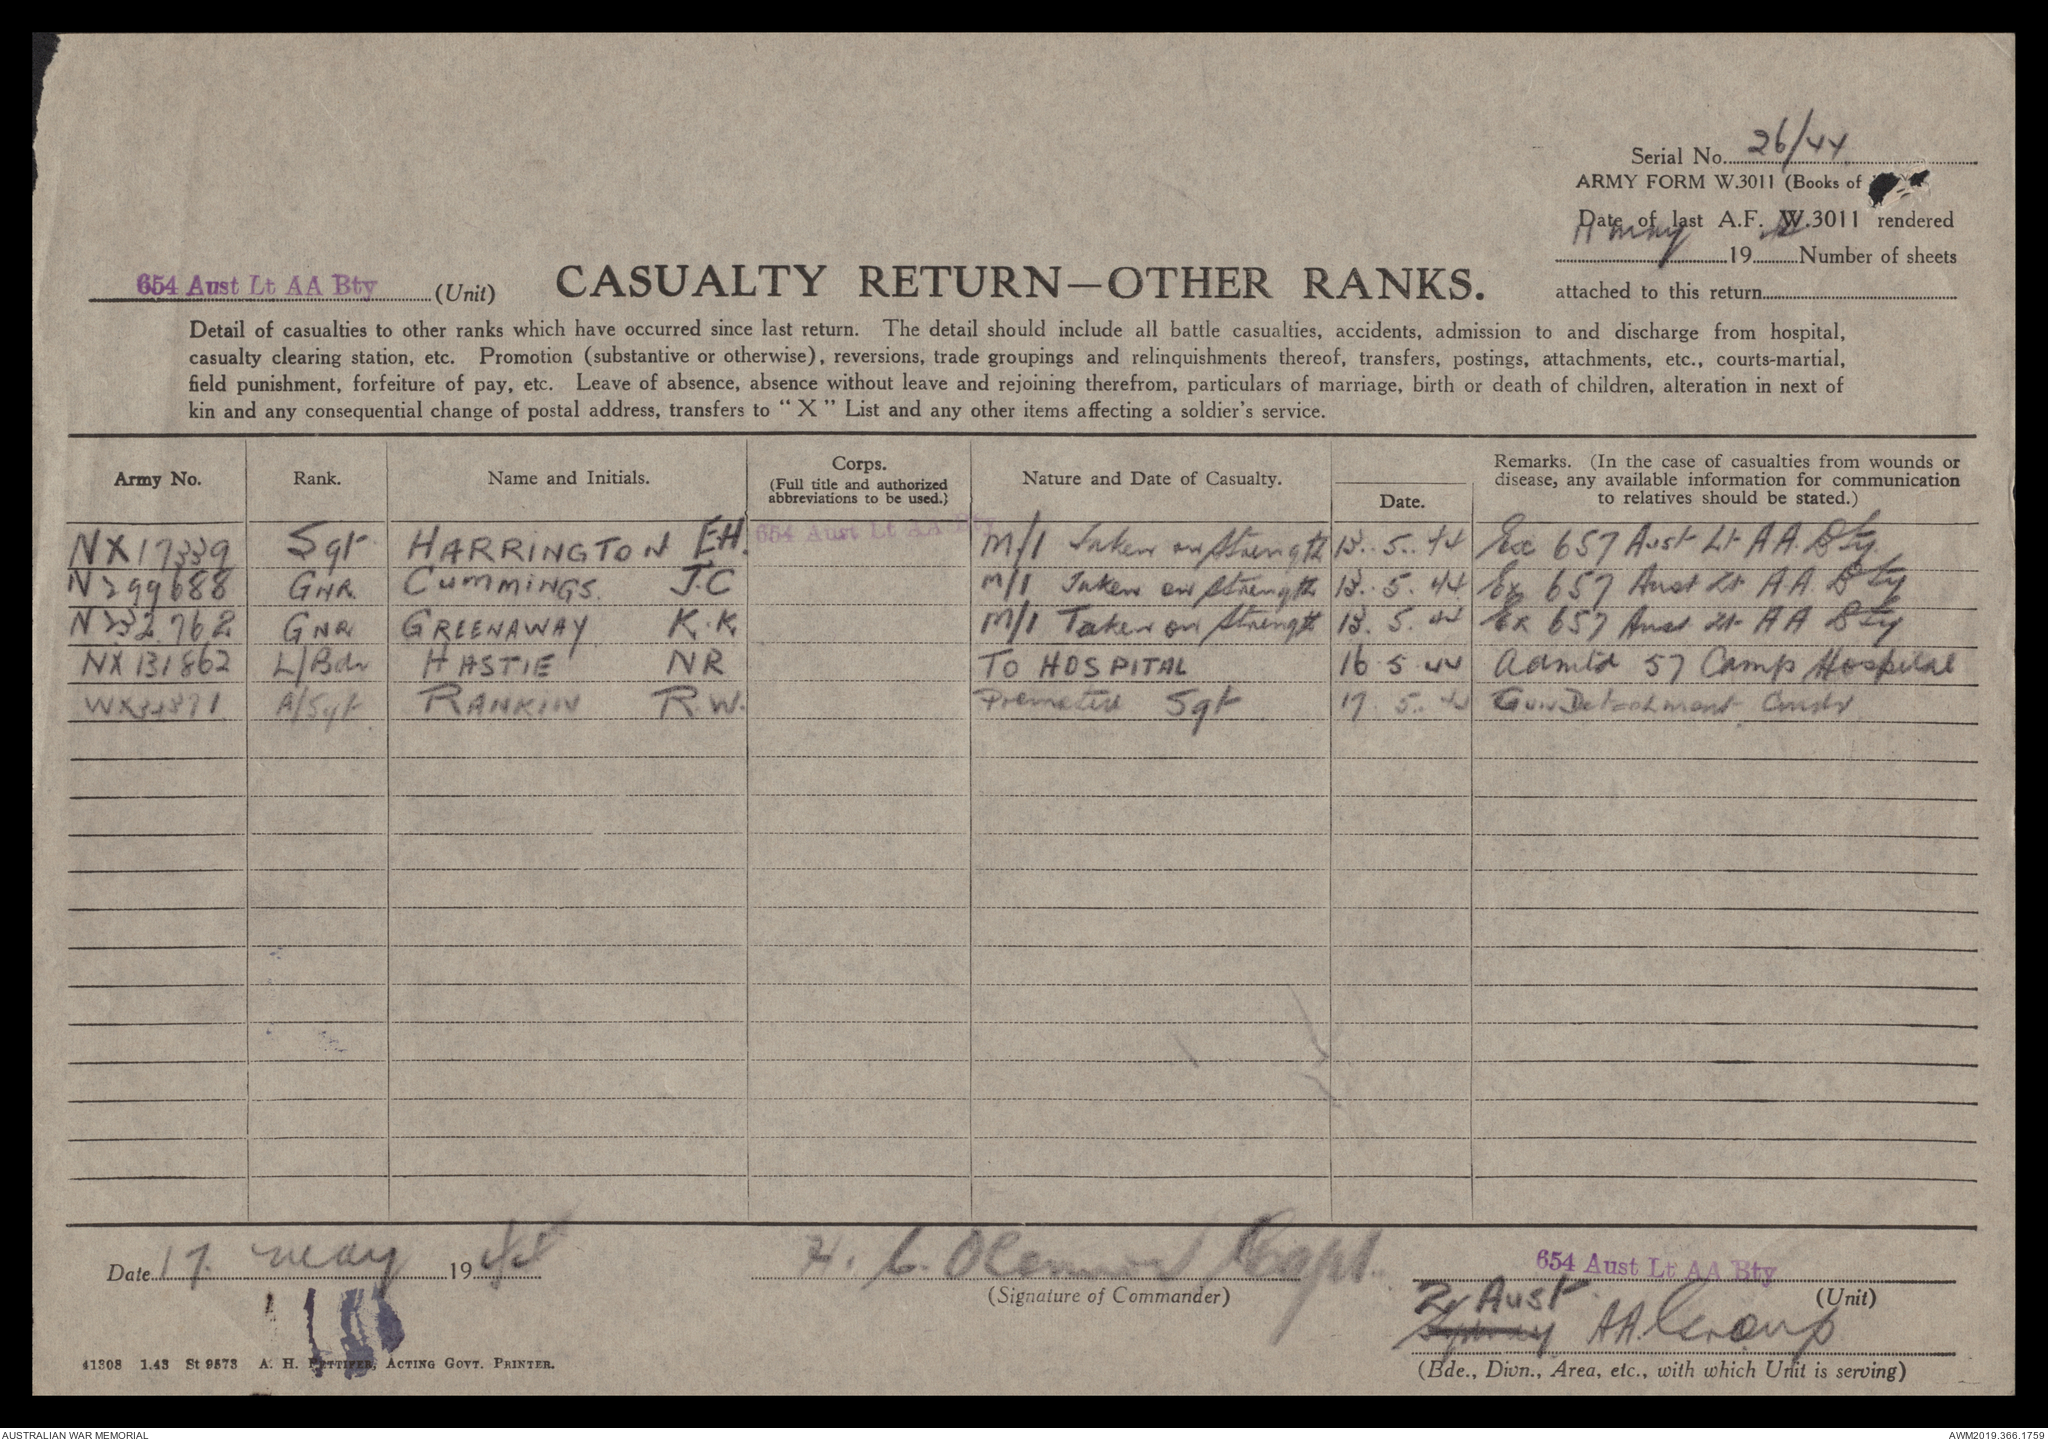 Serial No. 26/44
ARMY FORM W.3011 (Books of
Date of last A.F. W.3011 rendered
19 Number of sheets
attached to this return
654 Aust Lt AA Bty (Unit)
CASUALTY RETURN—OTHER RANKS.
Detail of casualties to other ranks which have occurred since last return. The detail should include all battle casualties, accidents, admission to and discharge from hospital,
casualty clearing station, etc. Promotion (substantive or otherwise), reversions, trade groupings and relinquishments thereof, transfers, postings, attachments, etc., courts-martial,
field punishment, forfeiture of pay, etc. Leave of absence, absence without leave and rejoining therefrom, particulars of marriage, birth or death of children, alteration in next of
kin and any consequential change of postal address, transfers to "X" List and any other items affecting a soldier's service.
Army No. Rank. Name and Initials. Corps. (Full title and authorized abbreviations to be used.) Nature and Date of Casualty. Date. Remarks. (In the case of casualties from wounds or disease, any available information for communication to relatives should be stated.)
NX17339 Sgt HARRINGTON E.H. 654 Aust Lt AA Bty M/I Taken on Strength 13.5.44 Ex 657 Aust Lt AA Bty
N299688 GNR CUMMINGS. J.C M/I Taken on Strength 13.5.44 Ex 657 Aust Lt A.A. Bty
N232762 GNR GREENAWAY K.K M/I Taken on Strength 13.5.44 Ex 657 Aust Lt AA Bty
NX131862 L/Bdr HASTIE NR TO HOSPITAL 16.5.44 Admtd 57 Camp Hospital
A/Sgt RANKIN R.W. Sgt 17.5.44 Gun Detachment Cmdr
Date 17 May 1944
Capt.
(Signature of Commander)
654 Aust Lt AA Bty
(Unit)
2 Aust
AA Group
(Bde., Divn., Area, etc., with which Unit is serving)
41308 1.43 St 9573 A. H. PETTIFER, ACTING GOVT. PRINTER.
AUSTRALIAN WAR MEMORIAL
AWM2019.366.1759